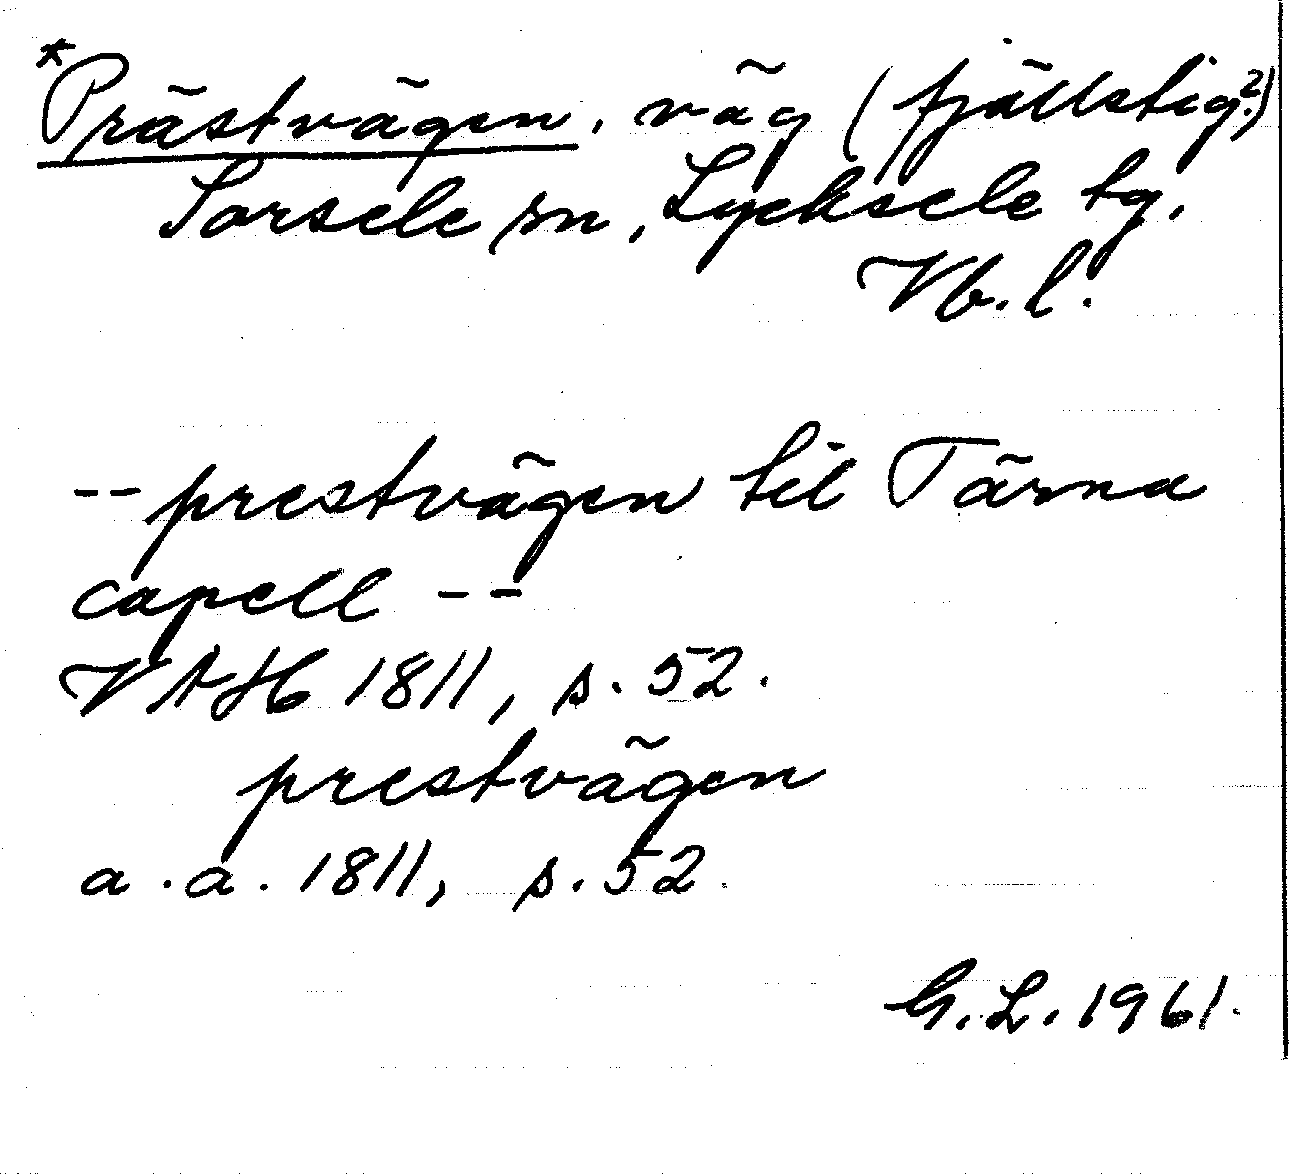 *Prästvägen, väg (fjällstig?)
Sorsele sn, Lycksele tg,
Vb. l.
-- prestvägen til Tärna
capell --
VAH 1811, s. 52.
prestvägen
a. a. 1811, s. 52.
G. L. 1961.